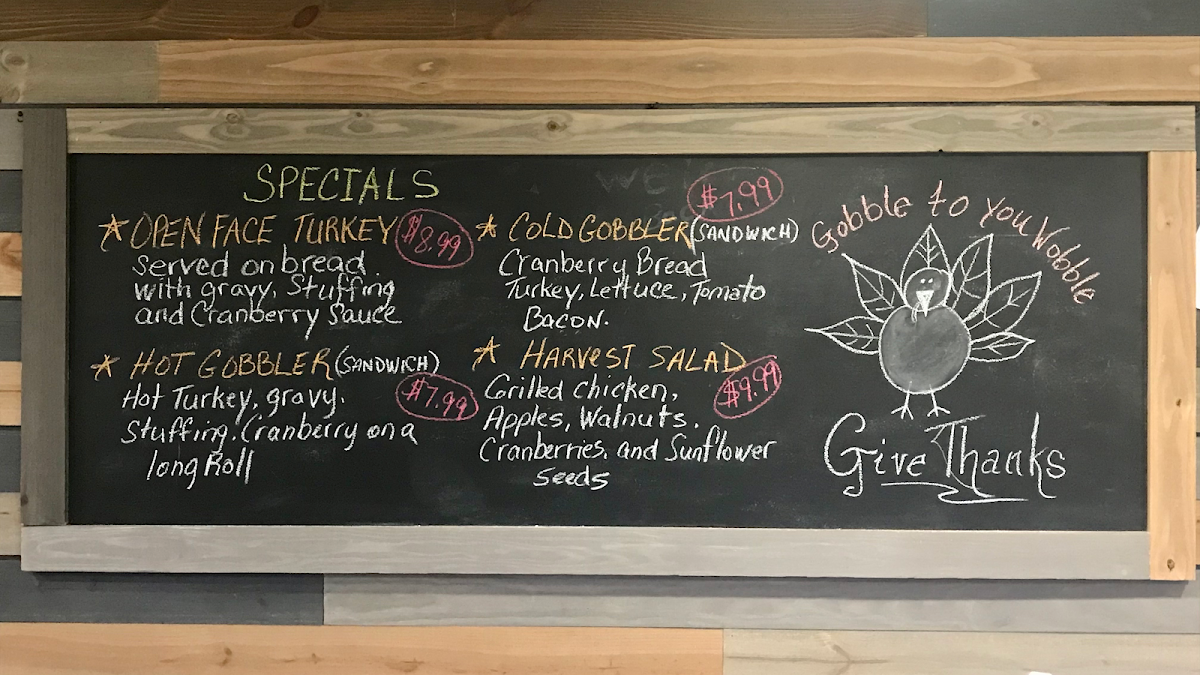 SPECIALS
OPEN FACE TURKEY $8.99
served on bread.
with gravy, Stuffing
and Cranberry Sauce
HOT GOBBLER (SANDWICH)
$7.99
Hot Turkey, gravy.
Stuffing. Cranberry on a
long Roll
$7.99
COLD GOBBLER (SANDWICH)
Cranberry Bread
Turkey, Lettuce, Tomato
BACON.
HARVEST SALAD
$9.99
Grilled chicken,
Apples, Walnuts.
Cranberries, and Sunflower
Seeds
Gobble to you Wobble
Give Thanks